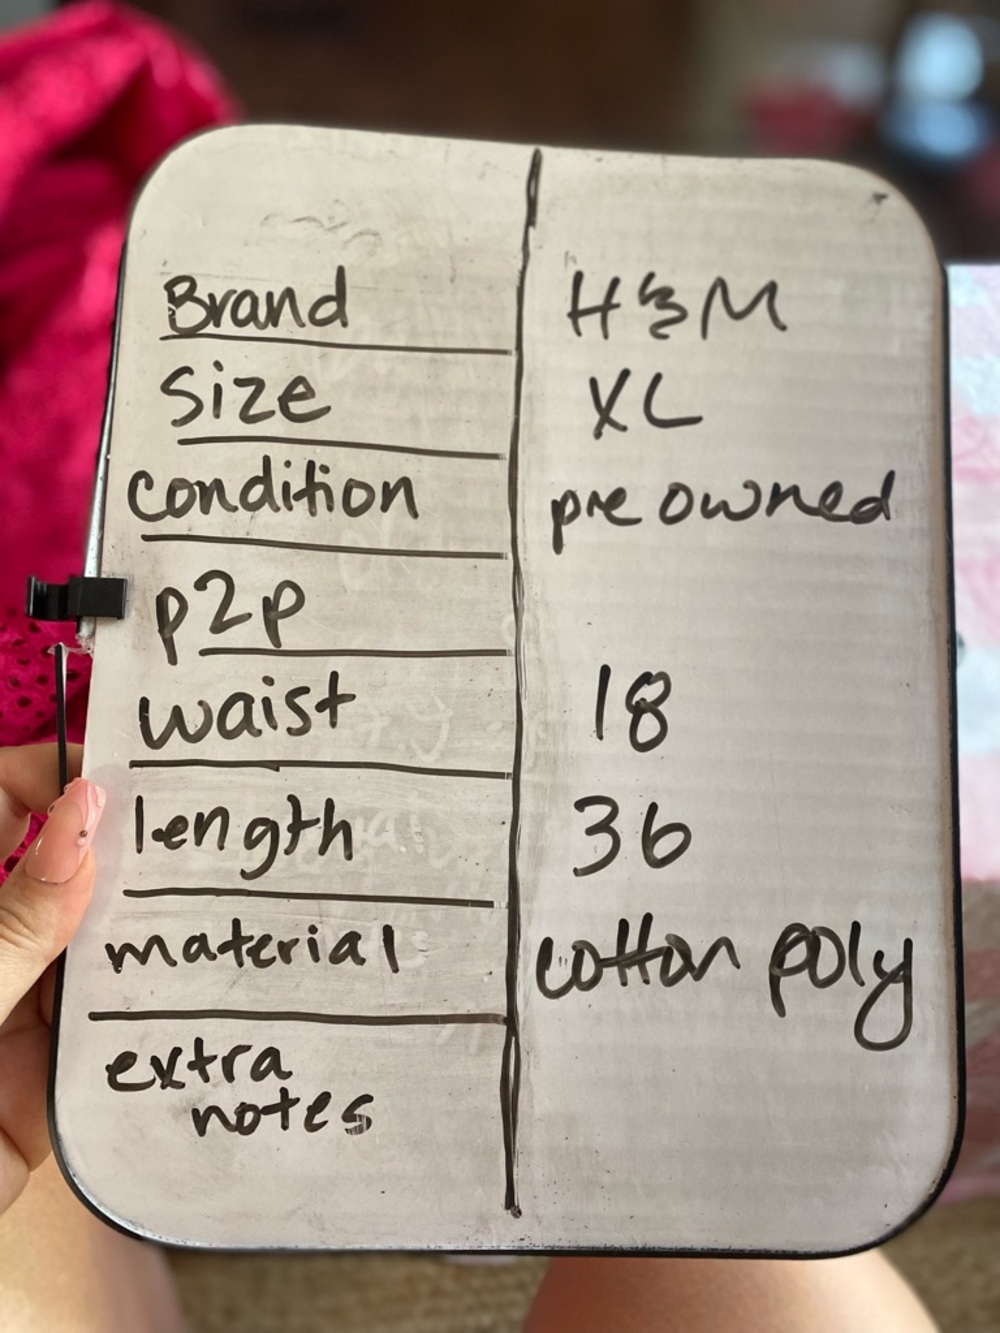 Brand H&M
Size XL
Condition pre owned
p2p
waist 18
length 36
material cotton poly
extra
notes